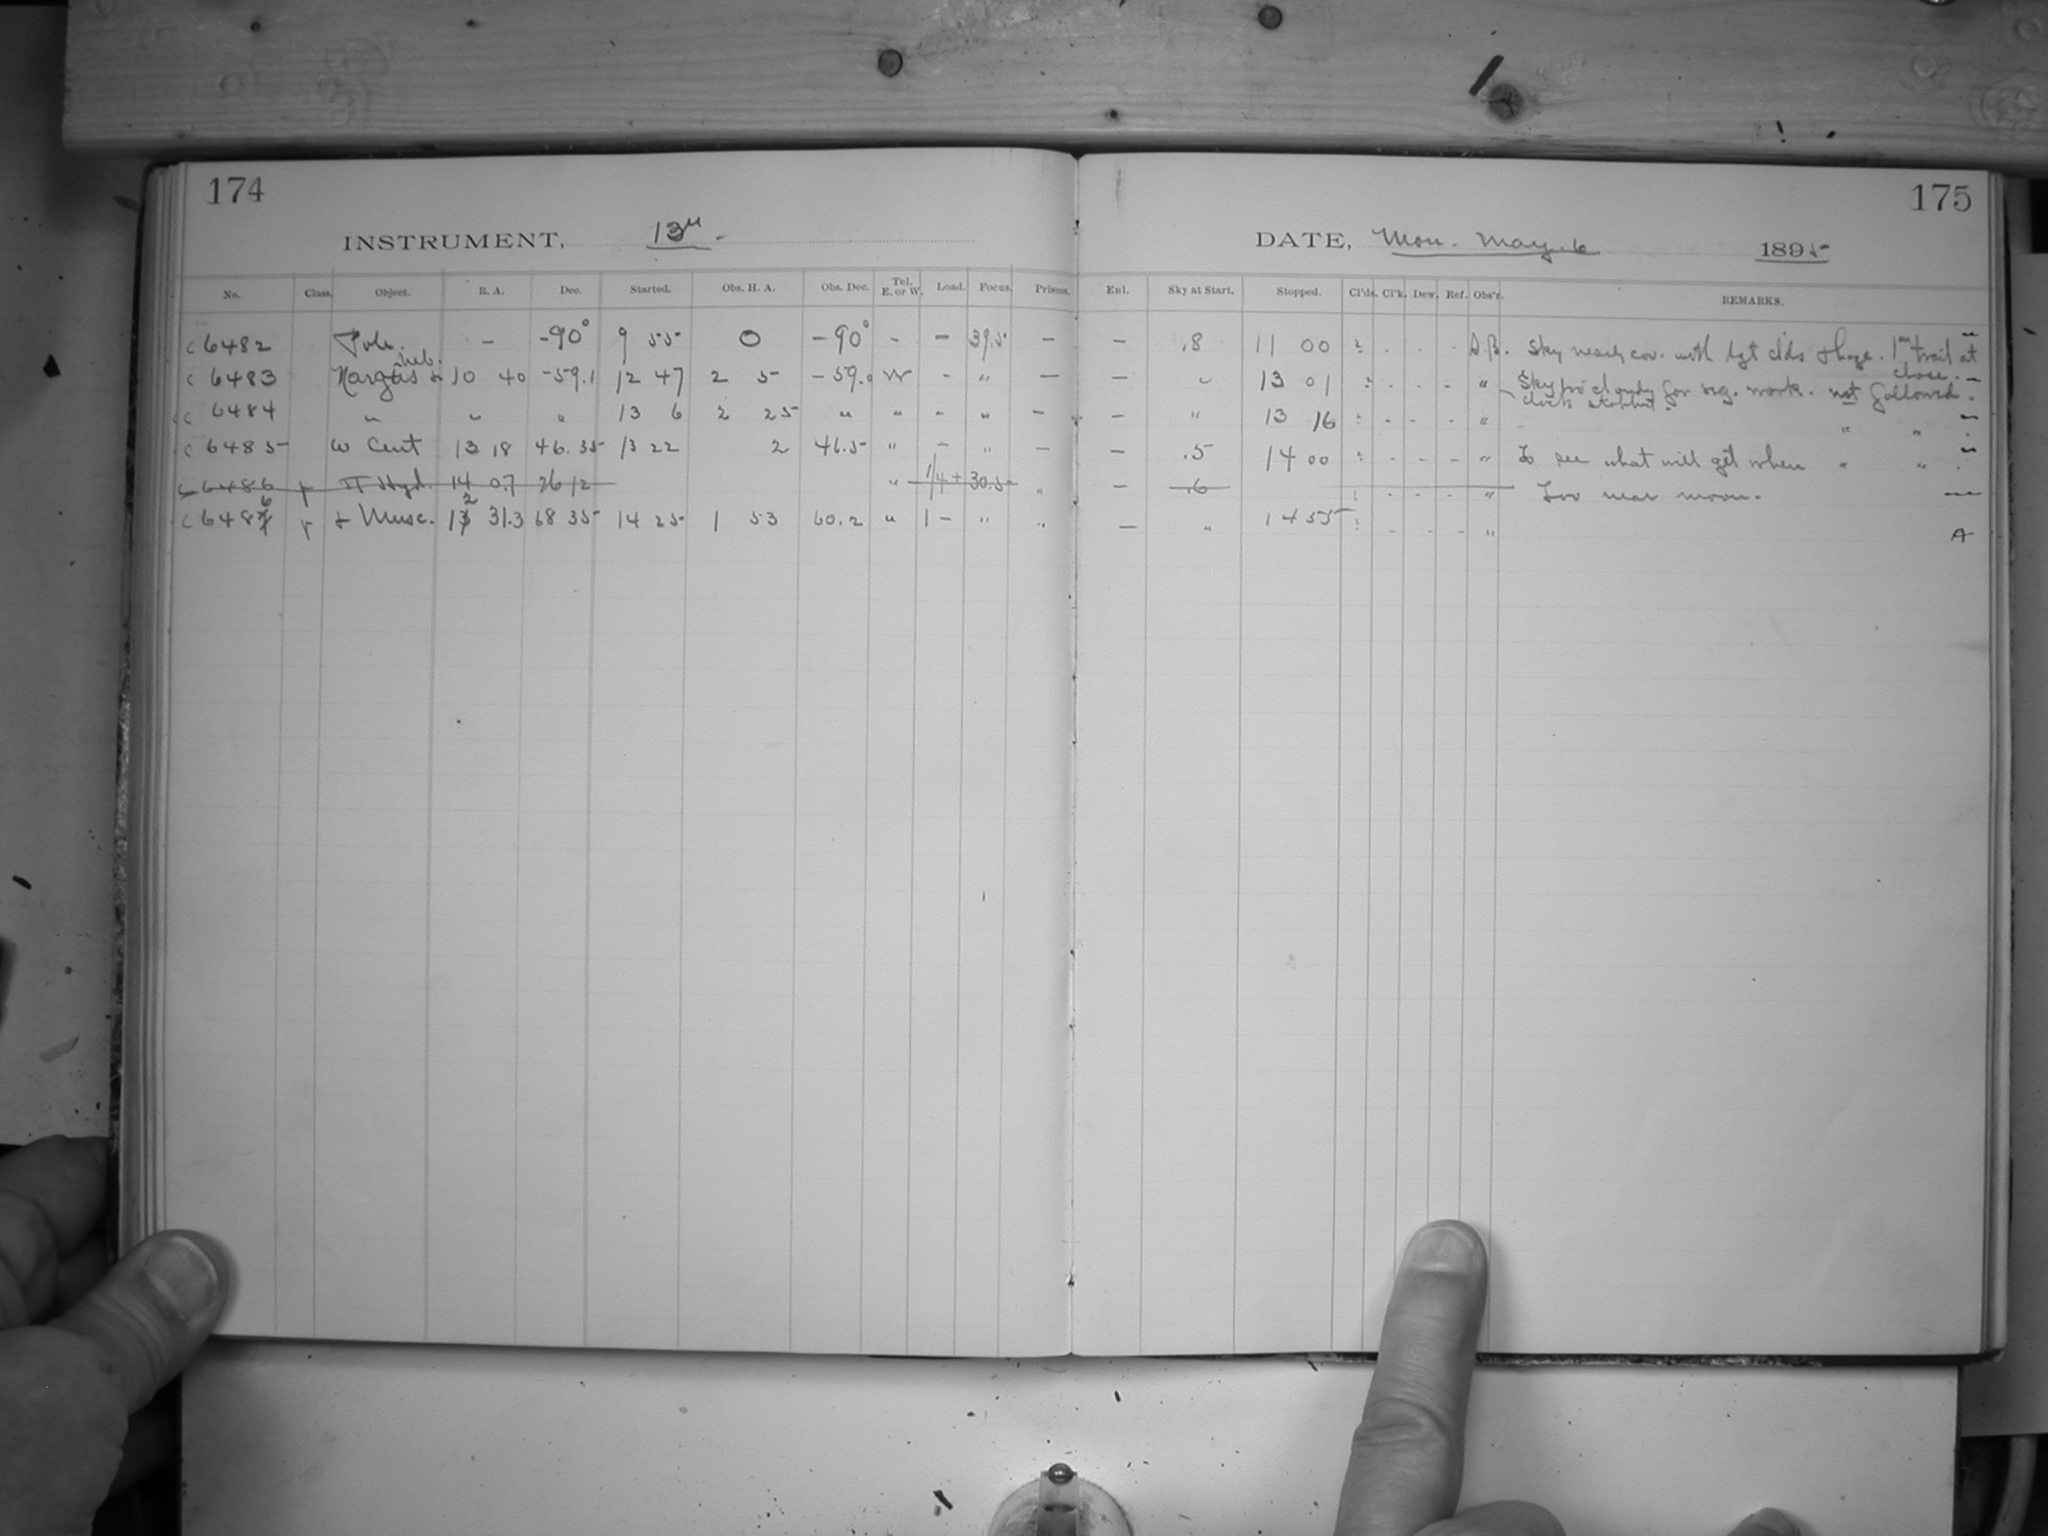 174
175
INSTRUMENT, 13"
DATE, Mon. May. 6 1895
No. Class. Object. R. A. Dec. Started. Obs. H. A. Obs. Dec. Tel. E. or W. Load. Focus. Prisms. Enl. Sky at Start. Stopped. Cl'ds. Cl'k. Dew. Ref. Obs'r. REMARKS.
c 6482 Pole. - -90° 9 55 0 -90° - - 39.5 - - .8 11 00 Sky nearly cov. with lgt clds & haze. 1 trail at close.
c 6483 neb. 10 40 -59.1 12 47 2 5 -59.0 W - " - - " 13 01 " Sky too cloudy for reg. work. not followed.
clock stopped.
c 6484 " " " 13 6 2 25 " " - " - - " 13 16 " " "
c 6485 w Cent 13 18 46.35 13 22 2 46.5 " - " - - .5 14 00 " To see what will get when " "
c 6486 π Hyd. 14 07 26 12 " 1/4+ 30.5 " - .6 " Too near moon.
c 6486 Musc. 12 31.3 68 35 14 25 1 53 60.2 " 1 - " " - " 14 55 " A